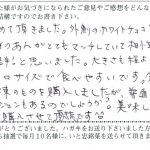 様がお気づきになられたご意見やご感想をどんな
結構ですのでお書き下さい。
めて頂きました。外側のホワイトチョコ
のあんがとてもマッチしていて相
しと思いました。大きさも程よ
口サイズで食べやすいです。
のものを購入しましたが、普通
ションもあるのでしょうか？
美味し
購入させて頂きます
がとうございました。ハガキをお送り下さいました方
抽選で毎月10名様に、いと忠銘菓を送らせて頂きま